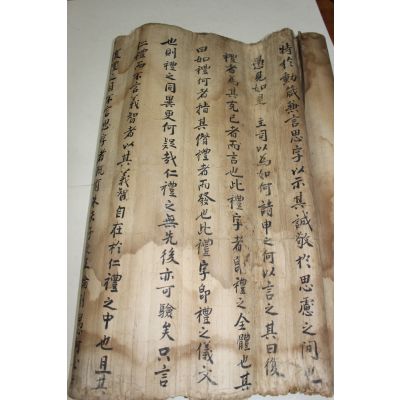 特於動箴無言思字以示其誠敬於思慮之間也
遇見如是 主司以為如何請申之何以言之其曰復
禮者為其克己者而言也此禮字者卽禮之全體也其
曰如禮何者指其僭禮者而發也此禮字卽禮之儀文
也則禮之同異更何疑哉仁禮之無先後亦可驗矣只言
仁禮而不言義智者以其義智自在於仁禮之中也且其
不言思字者